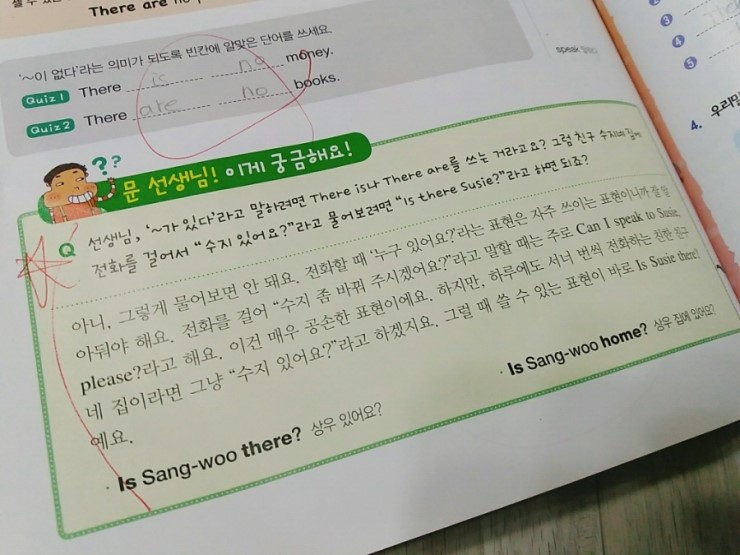 There are no
'~이 없다'라는 의미가 되도록 빈칸에 알맞은 단어를 쓰세요.
Quiz 1 There is no money.
Quiz 2 There are no books.
speak
문 선생님! 이게 궁금해요!
Q 선생님, '~가 있다'라고 말하려면 There is나 There are를 쓰는 거라고요? 그럼 친구 수지네 집에
전화를 걸어서 "수지 있어요?"라고 물어보려면 "is there Susie?"라고 하면 되죠?
아니, 그렇게 물어보면 안 돼요. 전화할 때 '누구 있어요?'라는 표현은 자주 쓰이는 표현이니까 잘 알
아둬야 해요. 전화를 걸어 "수지 좀 바꿔 주시겠어요?"라고 말할 때는 주로 Can I speak to Susie,
please?라고 해요. 이건 매우 공손한 표현이에요. 하지만, 하루에도 서너 번씩 전화하는 친한 친구
네 집이라면 그냥 "수지 있어요?"라고 하겠지요. 그럴 때 쓸 수 있는 표현이 바로 Is Susie there?
예요.
· Is Sang-woo there? 상우 있어요?
· Is Sang-woo home? 상우 집에 있어요?
3
4
5
4. 우리말